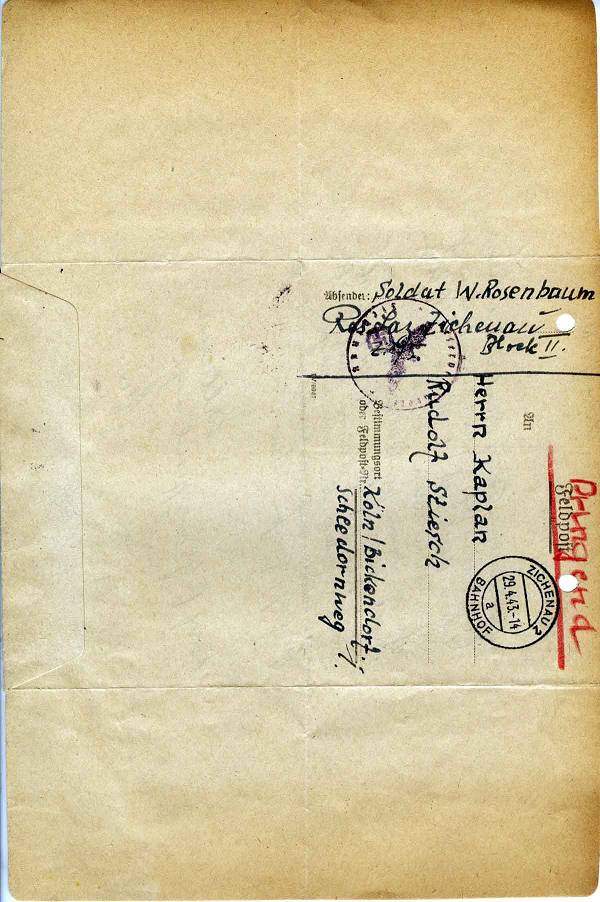 Absender: Soldat W. Rosenbaum
Res. Laz. Zichenau
Block II.
An
Dringend
Feldpost
Herrn Kaplan
Rudolf
Bestimmungsort
oder Feldpost-Nr. Köln/Bickendorf.
Schleedornweg
ZICHENAU 2
29.4.43.-14
a
BAHNHOF